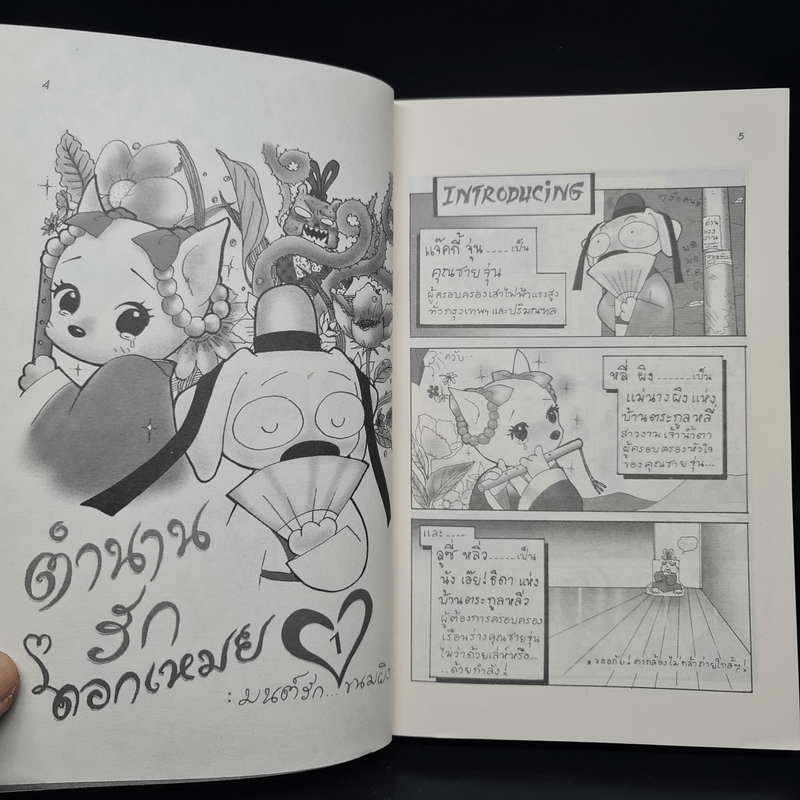 4
ตำนาน
รัก
ดอกเหมย
1
: มนต์รัก... ขนมผิง
5
INTRODUCING
แจ๊คกี้ จุ่น ......เป็น
คุณชายจุ่น
ผู้ครอบครองเสาไฟฟ้าแรงสูง
ทั่วกรุงเทพฯ และปริมณฑล
ด่วน
แรง
งาน
หลี่ ผิง ......เป็น
แม่นางผิงแห่ง
บ้านตระกูลหลี่
สาวงามเจ้าน้ำตา
ผู้ครอบครองหัวใจ
ของคุณชายจุ่น...
และ....
ลูซี่ หลิ่ว .....เป็น
นัง เอ๊ย! ธิดา แห่ง
บ้านตระกูลหลิ่ว
ผู้ต้องการครอบครอง
เรือนร่างคุณชายจุ่น
ไม่ว่าด้วยเล่ห์หรือ..
..ด้วยกำลัง!
* ขออภัย! ตากล้องไม่กล้าถ่ายใกล้ๆ!